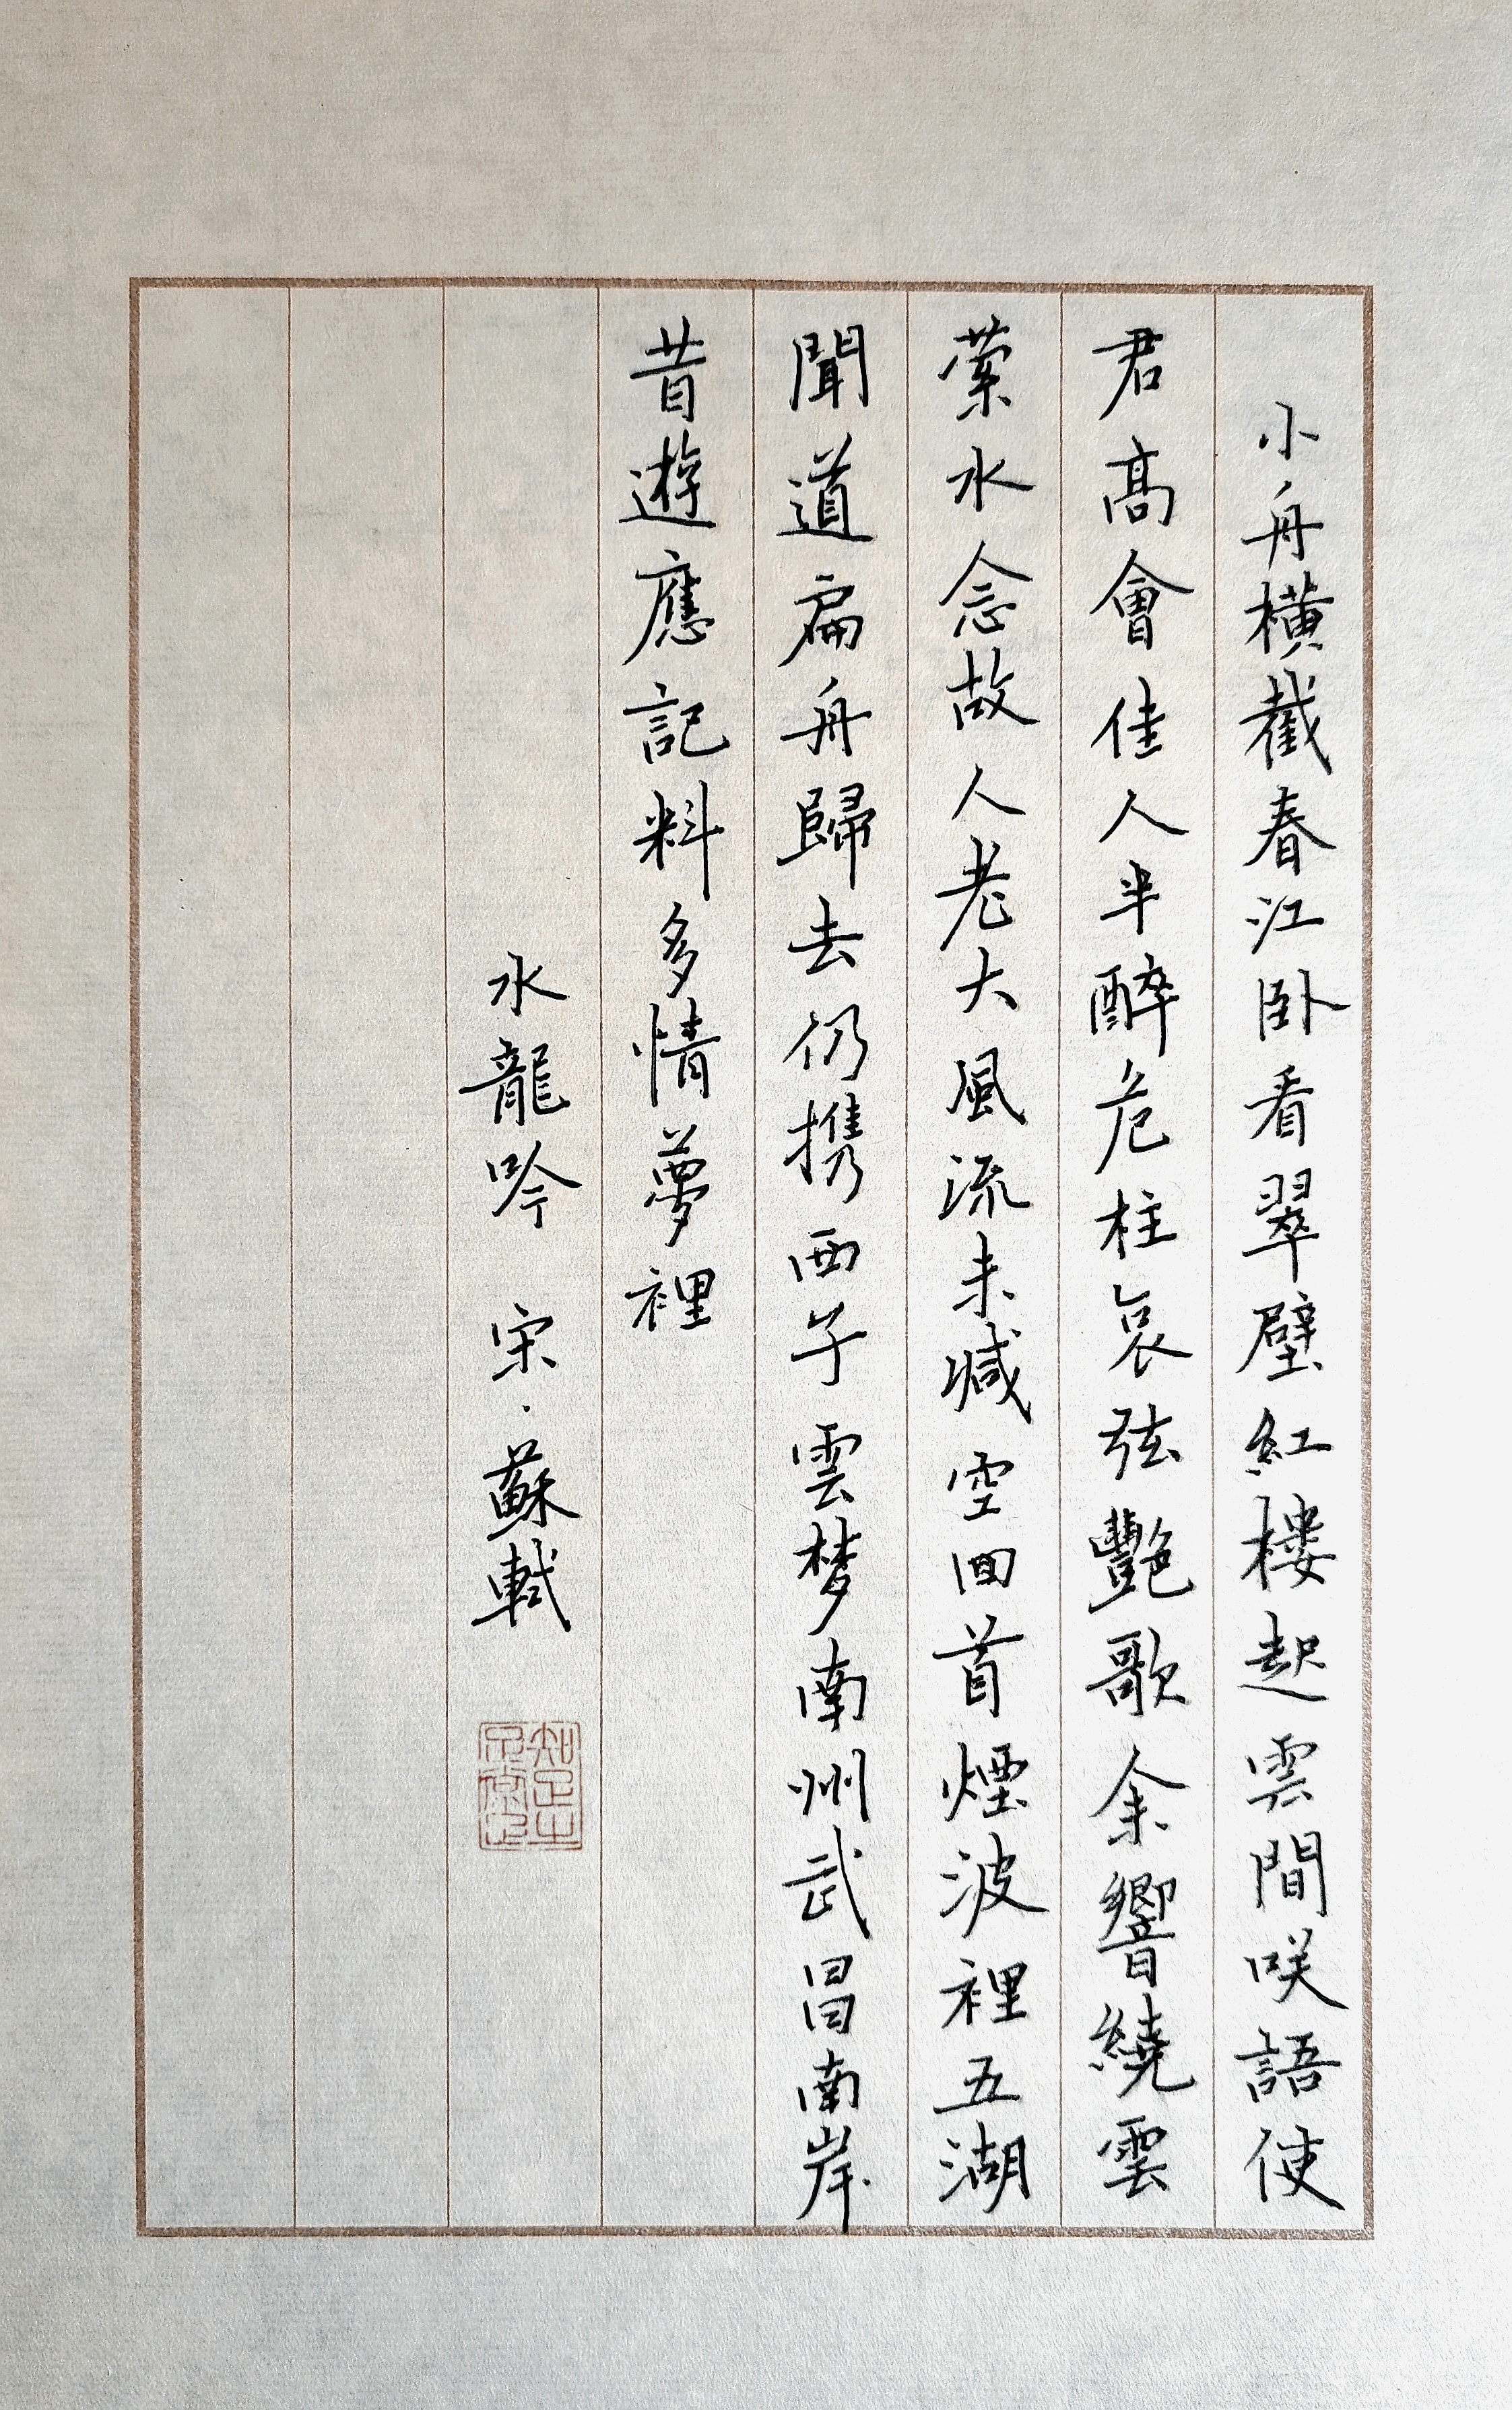 小舟横截春江卧看翠壁紅樓起雲間咲語使
君高會佳人半醉危柱哀弦艷歌余響繞雲
萦水念故人老大風流未減空回首煙波裡五湖
聞道扁舟歸去仍携西子雲梦南州武昌南岸
昔遊應記料多情夢裡
水龍吟 宋·蘇軾